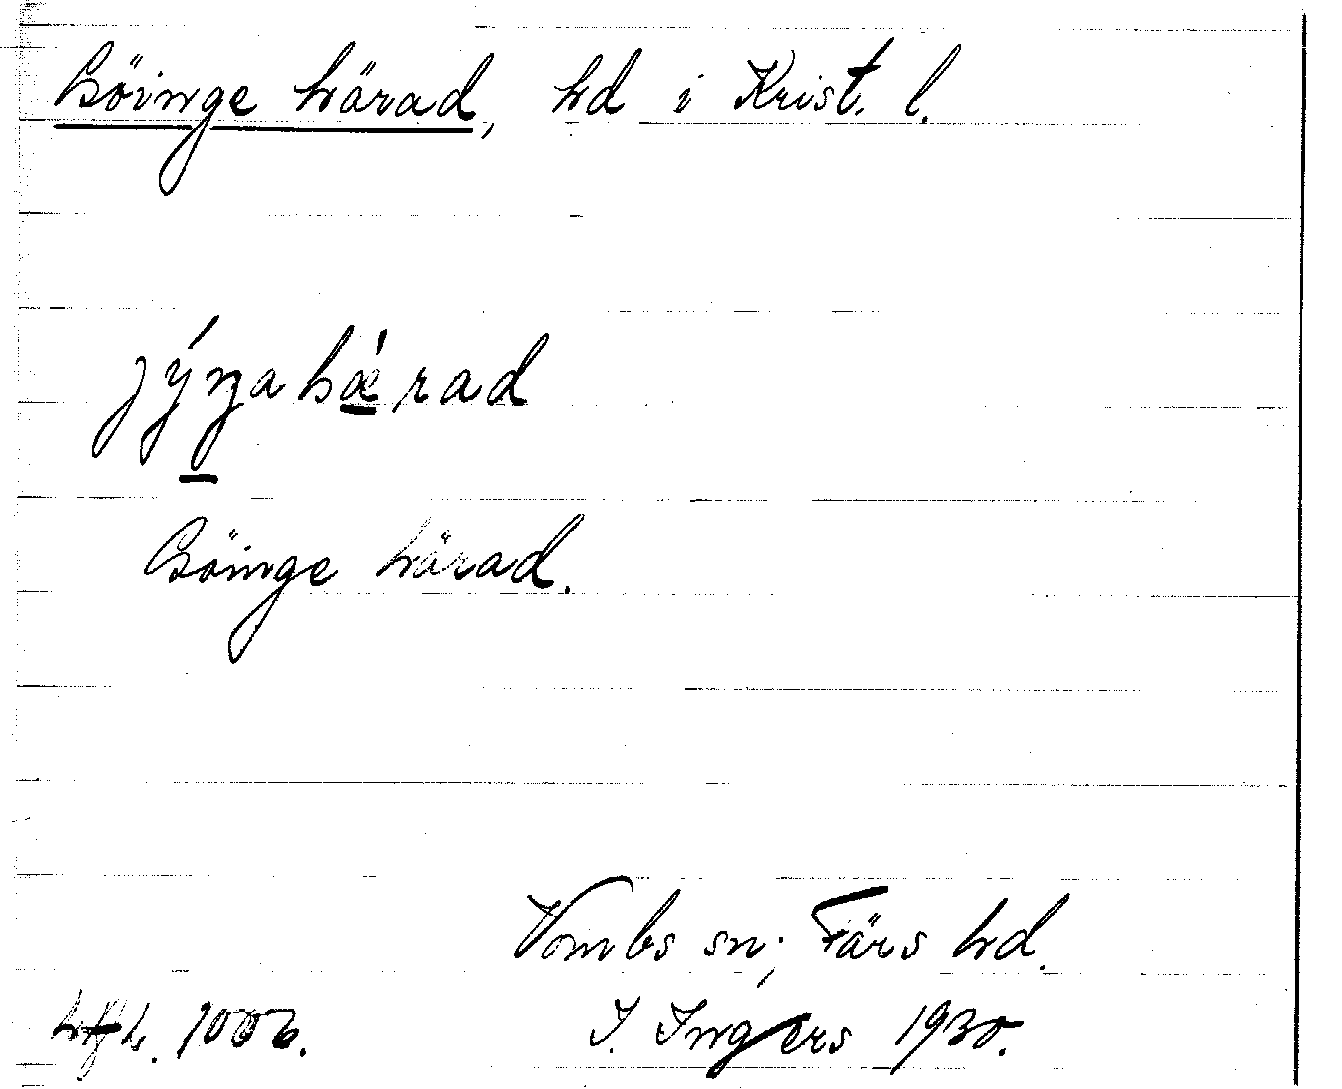 Göinge härad, hd i Krist. l.
jýŋahǽrad
Göinge härad.
Vombs sn; Färs hd.
I. Ingers 1930.